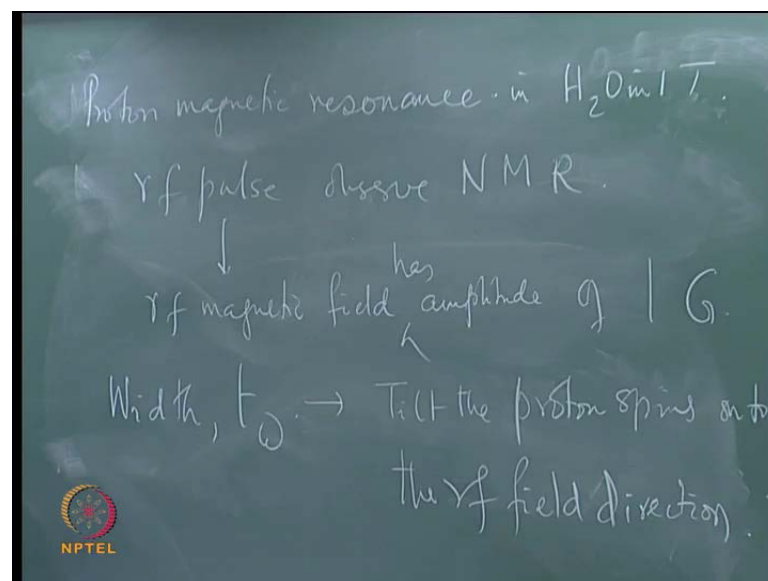 Proton magnetic resonance in H₂O in 1 T.
rf pulse observe NMR.
↓
has
rf magnetic field amplitude of 1 G.
Width, tω → Tilt the proton spins onto
the rf field direction.
NPTEL